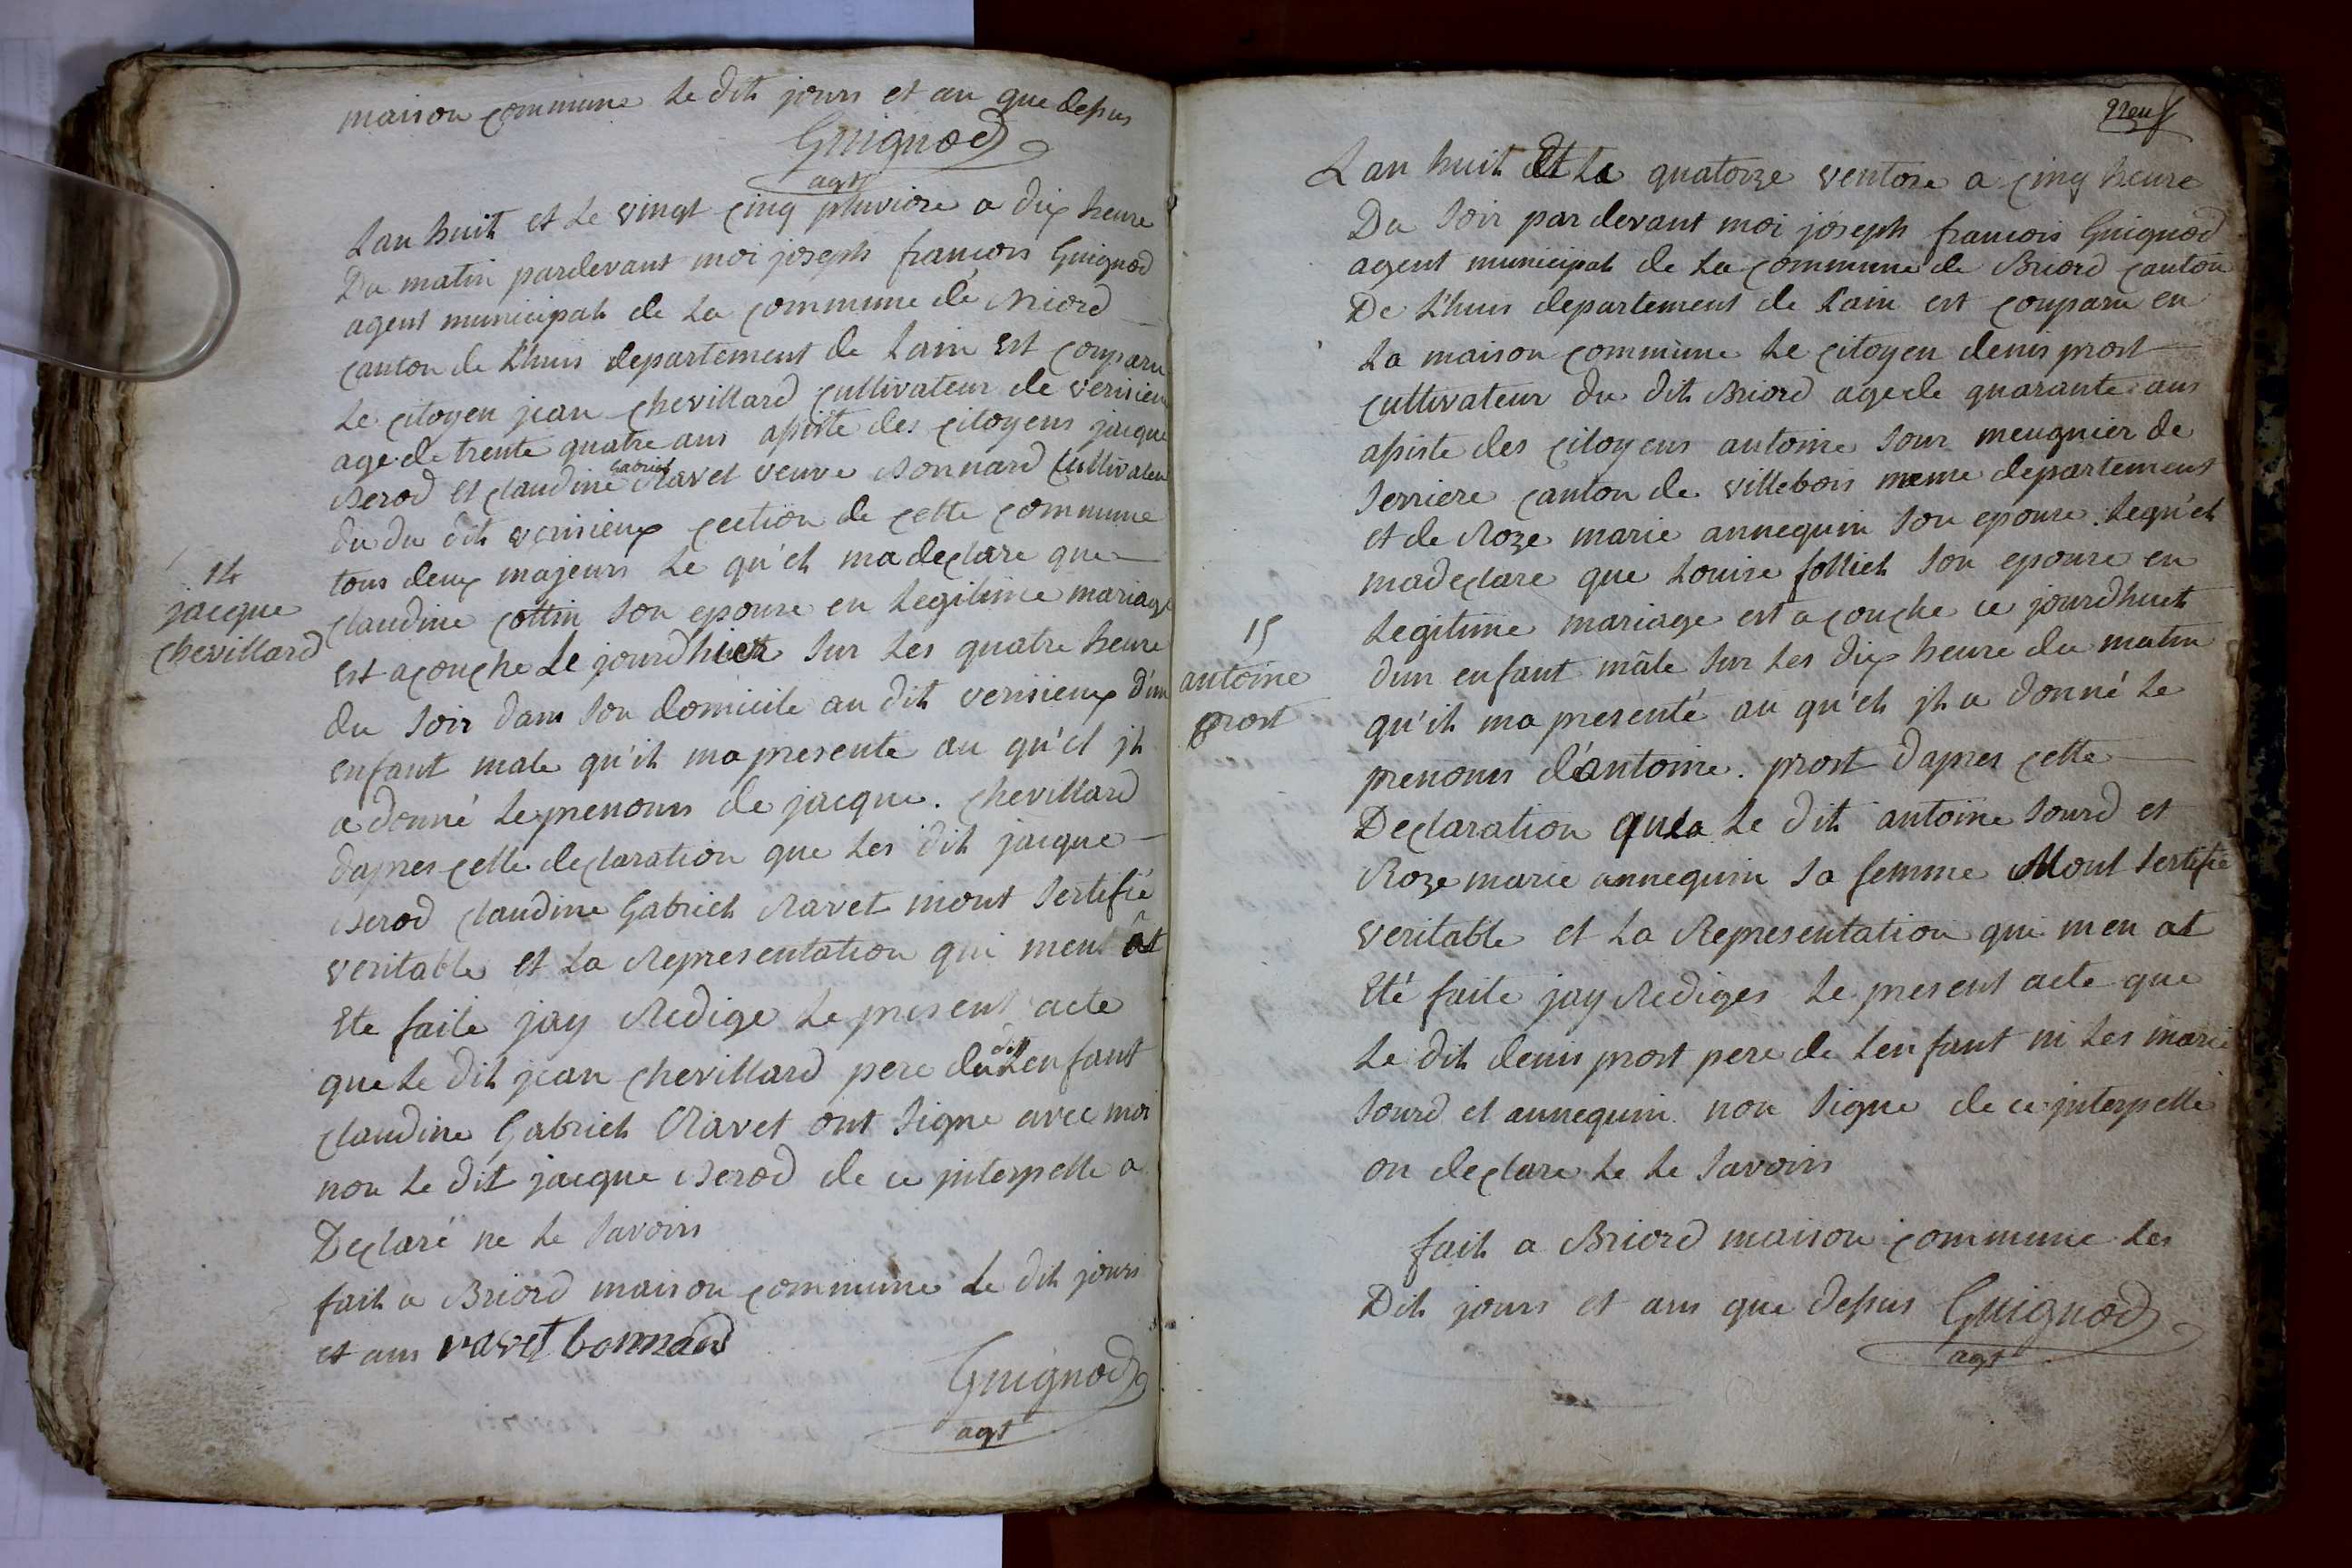 maison commune le dit jours et an que depus
Guignod
agt
Lan huit et le vingt cinq pluviose a dix heure
Du matin pardevant moi joseph francois Guignod
agent municipal de la commune de Briord
canton de Lhuis departement de Lain est conparu
Le citoyen jean chevillard cultivateur de verisieu
age de trente quatre ans assiste des citoyens jacque
Berod et claudine gabriel Ravet veuve Bonnard cultivateu
du du dit verisieux cection de cette commune
tous deux majeurs le qu'el ma declare que
14
jacque
chevillard
claudine cottin son epouse en legitime mariage
est acouche le jourdhier sur les quatre heure
du soir dans son domicile au dit verisieux d'un
enfant male qu'il ma presente au qu'el jl
a donné le prenoms de jacque. chevillard
dapres cette declaration que les dit jacque
Berod claudine Gabriel Ravet mont sertifié
veritable et la Representation qui ment at
Ete faite jay Redige le present acte
que le dit jean chevillard pere du dit Lenfant
claudine Gabriel Ravet ont signe avec moi
non le dit jacque Berod de ce jnterpelle a
Declaré ne le savoirs
fait a Briord maison commune le dit jours
et ans ravet bonnard
Guignod
agt
neuf
Lan huit Et le quatorze ventose a cinq heure
Du soir par devant moi joseph francois Guignod
agent municipal de la commune de Briord canton
De Lhuis departement de Lain est conparu en
La maison commune le citoyen denis prost
cultivateur du dit Briord age de quarante ans
assiste des citoyens antoine sour meugnier de
serriere canton de villebois meme departement
et de Roze marie annequin son epouse. lequ'el
madeclare que Louise folliet son epouse en
15
antoine
prost
Legitime mariage est acouche ce jourdhuit
dun enfant mâle sur les dix heure du matin
qu'il ma presenté au qu'el jl a donné le
prenoms d'antoine. prost dapres cette
Declaration quea le dit antoine sourd et
Roze marie annequin sa femme Mont sertifie
veritable et la Representation qui men at
Eté faite jay Rediges le present acte que
Le dit denis prost pere de Lenfant ni les marié
sourd et annequin non signe de ce jnterpelle
on declare le le savoirs
fait a Briord maison commune les
Dit jours et ans que depus Guignod
agt